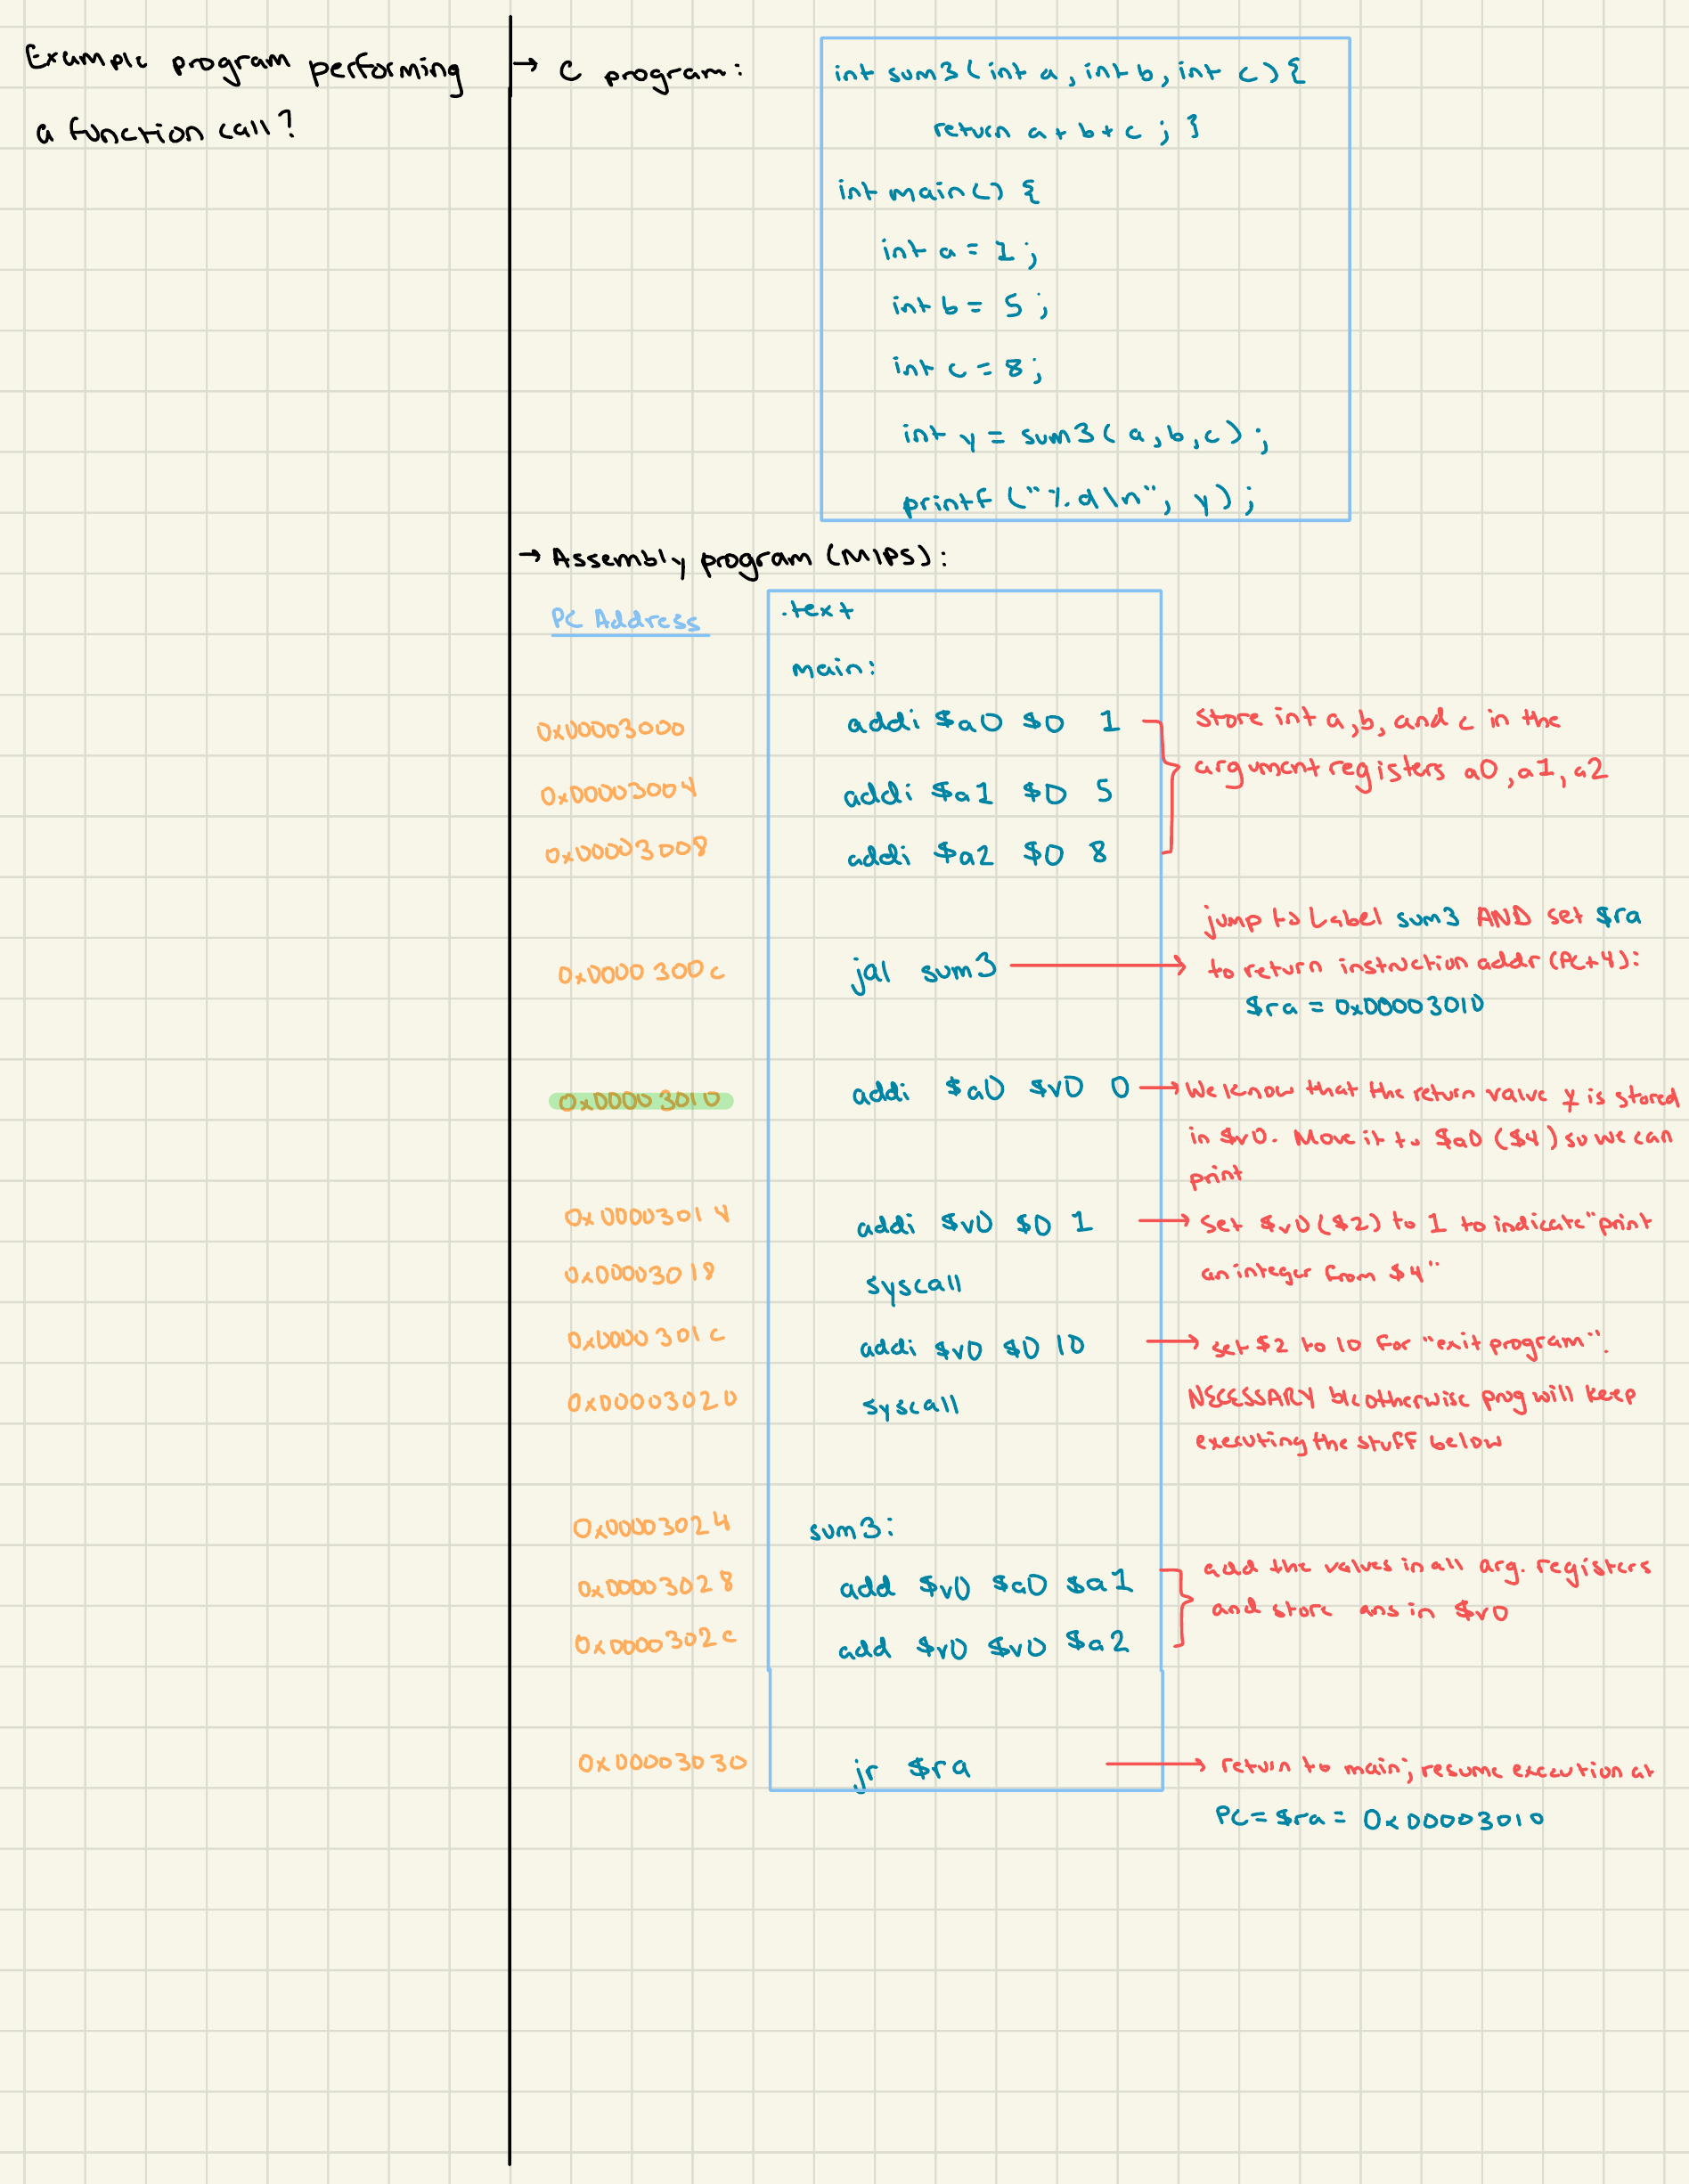 Example program performing
a function call?
→ C program:
int sum3(int a, int b, int c) {
return a + b + c ; }
int main() {
int a = 1 ;
int b = 5 ;
int c = 8 ;
int y = sum3(a, b, c) ;
printf ("%d\n", y) ;
→ Assembly program (MIPS):
PC Address
.text
main:
0x00003000 addi $a0 $0 1
store int a, b, and c in the
argument registers a0, a1, a2
0x00003004 addi $a1 $0 5
0x00003008 addi $a2 $0 8
jump to Label sum3 AND set $ra
0x0000300c jal sum3 → to return instruction addr (PC+4):
$ra = 0x00003010
0x00003010 addi $a0 $v0 0 → We know that the return value y is stored
in $v0. Move it to $a0 ($4) so we can
print
0x00003014 addi $v0 $0 1 → Set $v0 ($2) to 1 to indicate "print
an integer from $4"
0x00003018 syscall
0x0000301c addi $v0 $0 10 → set $2 to 10 for "exit program".
0x00003020 syscall
NECESSARY b/c otherwise prog will keep
executing the stuff below
0x00003024 sum3:
0x00003028 add $v0 $a0 $a1
add the values in all arg. registers
and store ans in $v0
0x0000302c add $v0 $v0 $a2
0x00003030 jr $ra → return to main; resume execution at
PC = $ra = 0x00003010